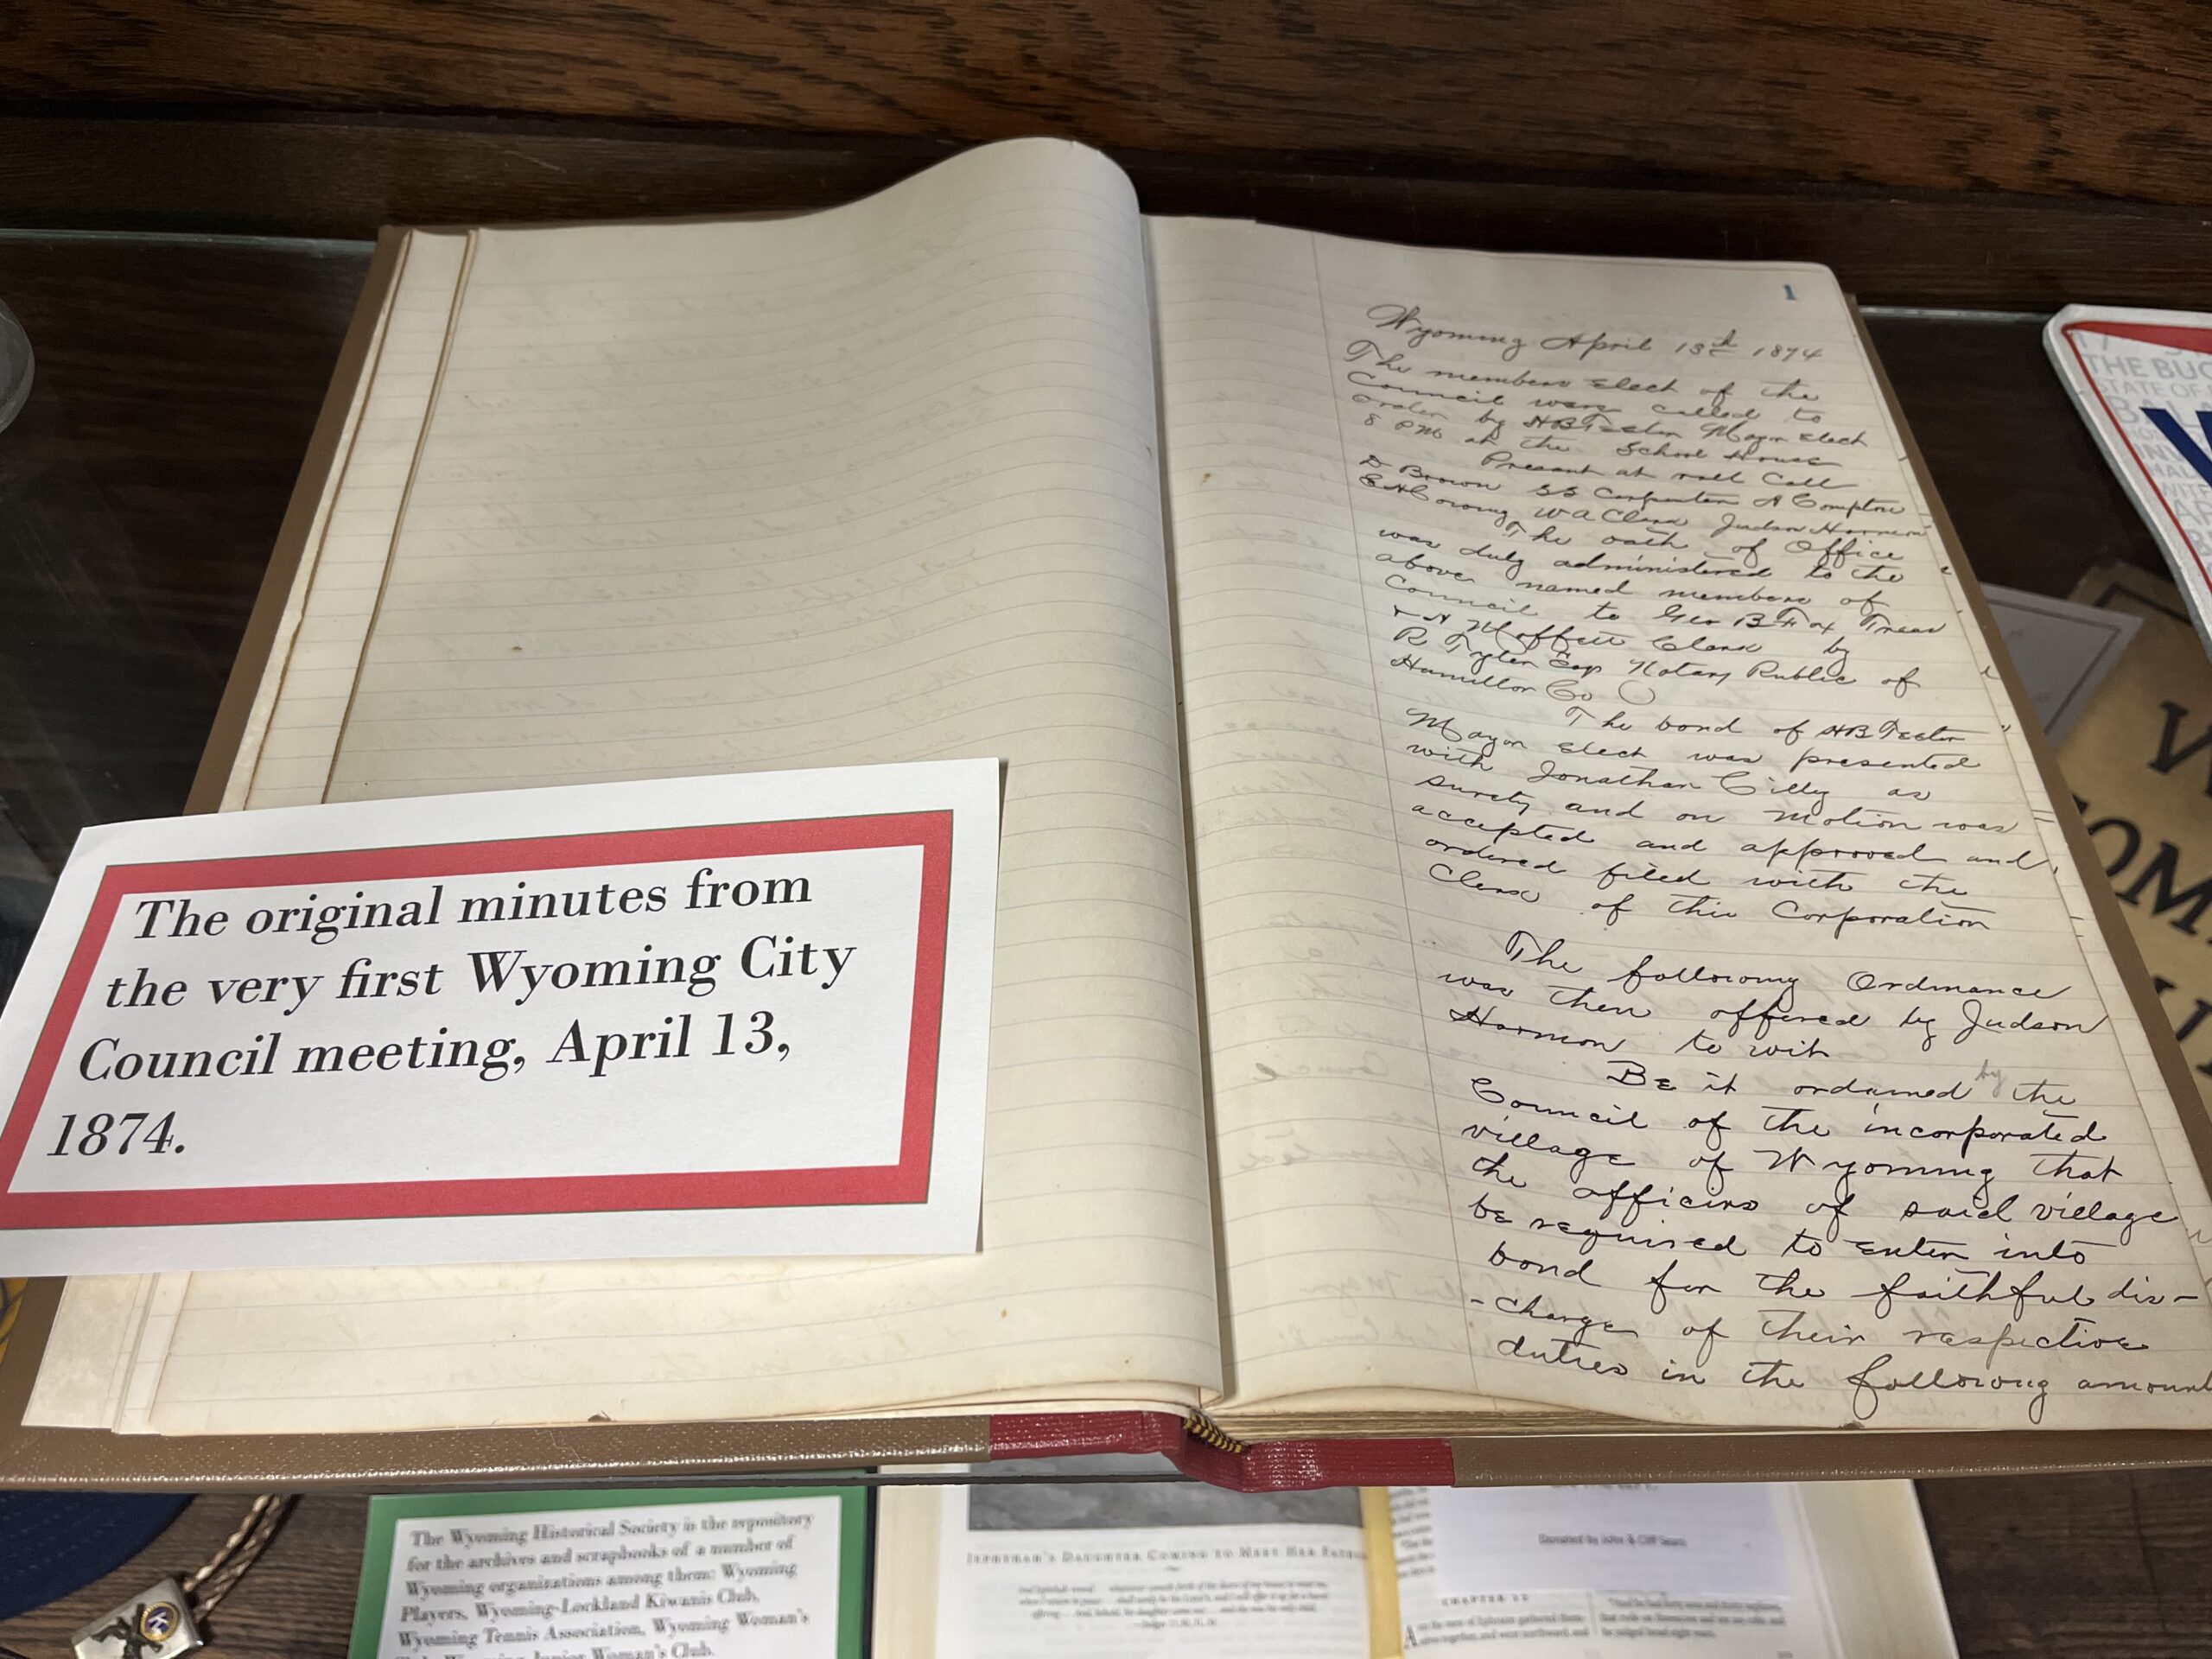 1
Wyoming April 13th 1874
The members elect of the
Council were called to
order by HB Teetor Mayor Elect
8 PM at the School House
Present at roll Call
D Brown SS Carpenter A Compton
W A Clark Judson Harmon
The oath of Office
was duly administered to the
above named members of
Council to Geo B Fox Treas
Moffett Clerk by
R Tyler Esq Notary Public of
Hamilton Co
The bond of HB Teetor
Mayor Elect was presented
with Jonathan Cilly as
surety and on Motion was
accepted and approved and
ordered filed with the
Clerk of this Corporation
The following Ordinance
was then offered by Judson
Harmon to wit
Be it ordained by the
Council of the incorporated
village of Wyoming that
the officers of said village
be required to enter into
bond for the faithful dis-
-charge of their respective
duties in the following amount
The original minutes from
the very first Wyoming City
Council meeting, April 13,
1874.
THE BUC
STATE OF
The Wyoming Historical Society is the repository
for the archives and scrapbooks of a number of
Wyoming organizations among them: Wyoming
Players, Wyoming-Lockland Kiwanis Club,
Wyoming Tennis Association, Wyoming Woman's
Club, Wyoming Junior Woman's Club,
JEPHTHAH'S DAUGHTER COMING TO MEET HER FATHER
Donated by John & Cliff Sears
CHAPTER
K